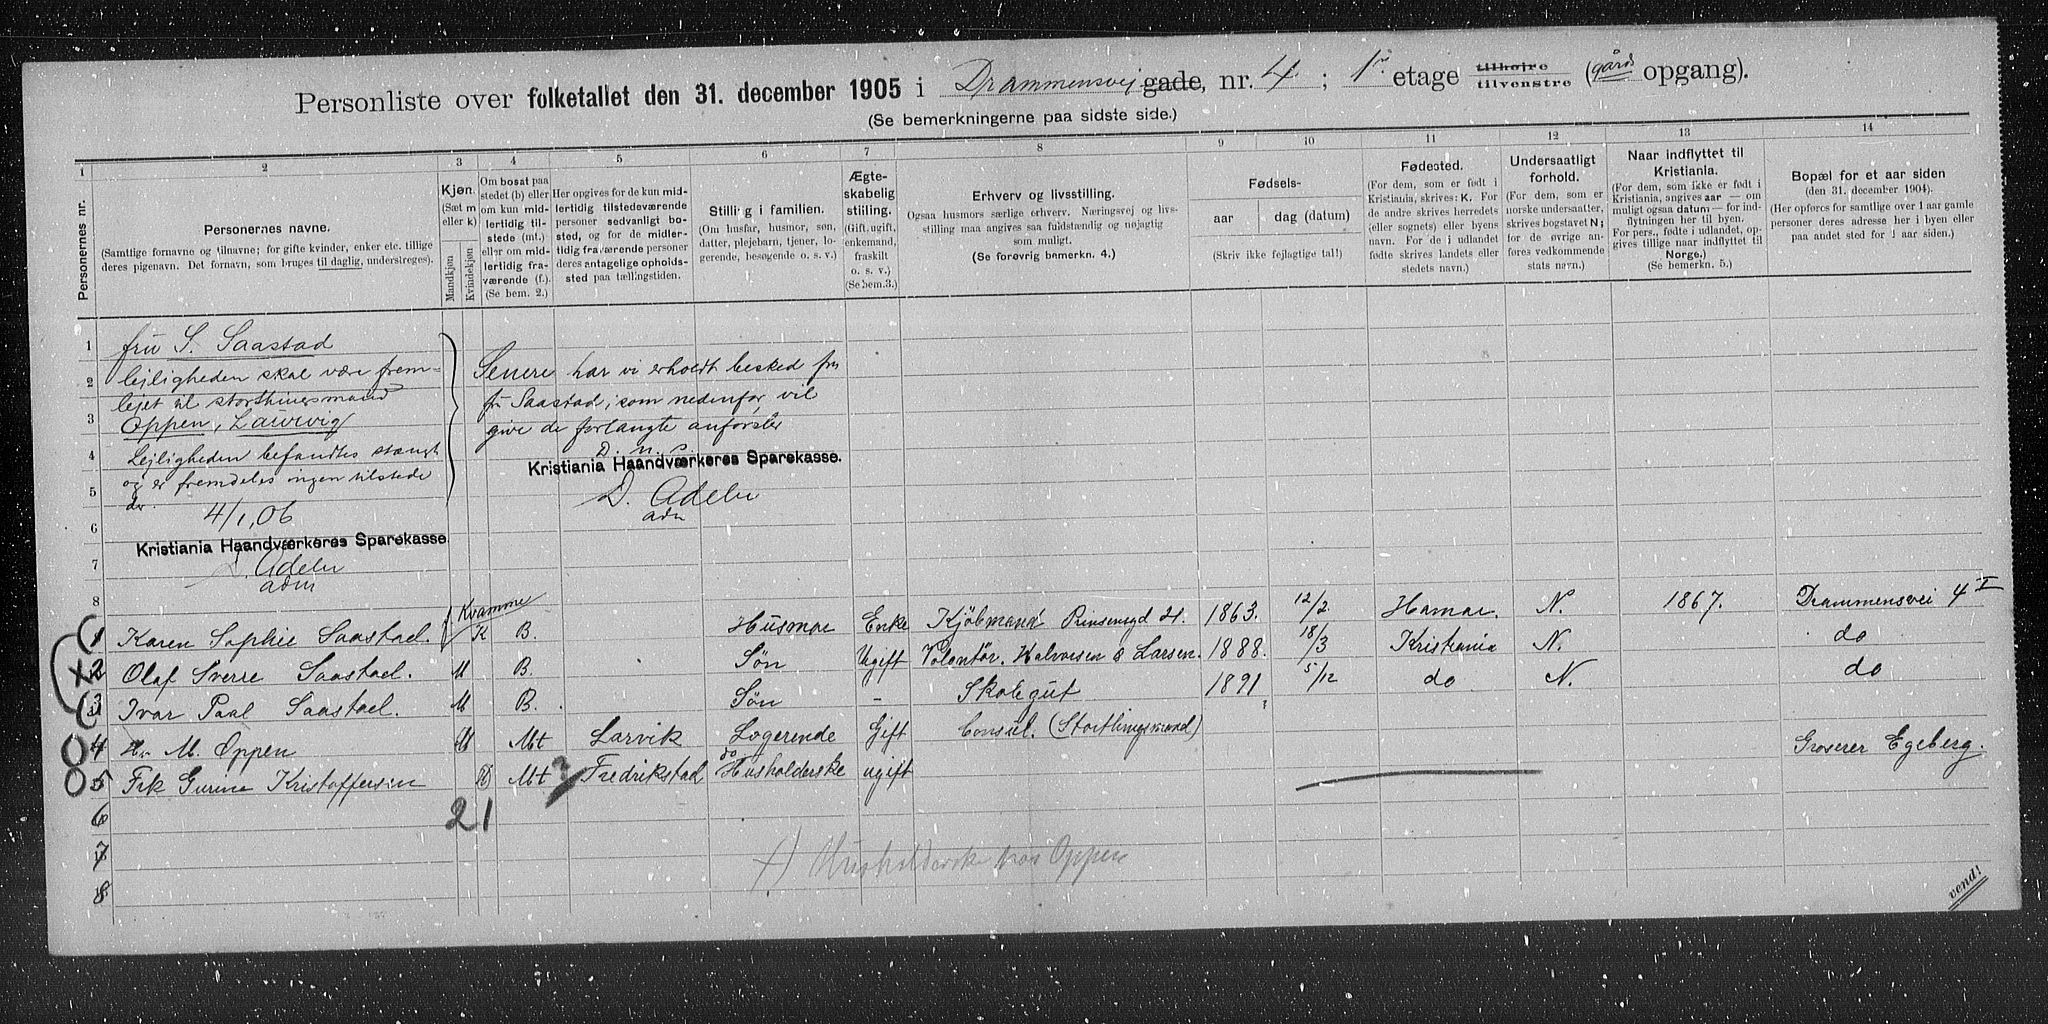 Personliste over folketallet den 31. december 1905 i Drammensvej gade, nr. 4 ; 1ste etage tilhøire tilvenstre (gårds opgang).
(Se bemerkningerne paa sidste side.)
1 2 3 4 5 6 7 8 9 10 11 12 13 14
Personernes nr.
Personernes navne.
(Samtlige fornavne og tilnavne; for gifte kvinder, enker etc. tillige
deres pigenavn. Det fornavn, som bruges til daglig, understreges).
Kjøn.
(Sæt m
eller k)
Mandkjøn
Kvindekjøn
Om bosat paa
stedet (b) eller
om kun mid-
lertidig til-
stede (mt.)
eller om mid-
lertidig fra-
værende (f.).
(Se bem. 2.)
Her opgives for de kun mid-
lertidig tilstedeværende
personer sedvanligt bo-
sted, og for de midler-
tidig fraværende personer
deres antagelige opholds-
sted paa tællingstiden.
Stilling i familien.
(Om husfar, husmor, søn,
datter, plejebarn, tjener, lo-
gerende, besøgende o. s. v.)
Ægte-
skabelig
stilling.
(Gift, ugift,
enkemand,
fraskilt
o. s. v.)
(Se bem.3.)
Erhverv og livsstilling.
Ogsaa husmors særlige erhverv. Næringsvej og livs-
stilling maa angives saa fuldstændig og nøjagtig
som muligt.
(Se forøvrig bemerkn. 4.)
Fødsels-
aar
dag (datum)
(Skriv ikke fejlagtige tal!)
Fødested.
(For dem, som er født i
Kristiania, skrives: K. For
de andre skrives herredets
(eller sognets) eller byens
navn. For de i udlandet
fødte skrives landets eller
stedets navn.)
Undersaatligt
forhold.
(For dem, som er
norske undersaatter,
skrives bogstavet N;
for de øvrige an-
føres vedkommende
stats navn.)
Naar indflyttet til
Kristiania.
(For dem, som ikke er født i
Kristiania, angives aar — om
muligt ogsaa datum — for ind-
flytningen her til byen.
For pers., fødte i udlandet, op-
gives tillige naar indflyttet til
Norge.)
(Se bemerkn. 5.)
Bopæl for et aar siden
(den 31. december 1904).
(Her opføres for samtlige over 1 aar gamle
personer deres adresse her i byen eller
paa andet sted for 1 aar siden.)
1 fru S. Saastad
2 lejligheden skal være frem-
lejet til storthingsmand
3 Oppen, Laurvig
4 Lejligheden befandtes stængt
5 og er fremdeles ingen tilstede
der.
6 4/1, 06
Kristiania Haandværkeres Sparekasse.
7 D. Adeler
adm
8
Senere har vi erholdt besked fra
fru Saastad, som nedenfor, vil
give de forlangte anførsler
D. u. s.
Kristiania Haandværkeres Sparekasse.
D. Adeler
adm
Kvamme
1 Karen Sophie Saastad. K B. Husmor Enke Kjöbmand Prinsensgd 21. 1863. 12/2 Hamar. N. 1867. Drammensvei 4 I
2 Olaf Sverre Saastad. M B. Søn Ugift Volontör. Halvorsen & Larsen. 1888. 18/3 Kristiania N. do
3 Ivar Paal Saastad. M B. Søn - Skolegut 1891 5/12 do N. do
4 Hr. M. Oppen M Mt Larvik Logerende Gift Consul. (Stortingsmand) Groserer Egeberg.
5 Frk Gurine Kristoffersen K Mt Fredrikstad do Husholderske ugift
6
21
7
8
x) Husholderske hos Oppen
vend!